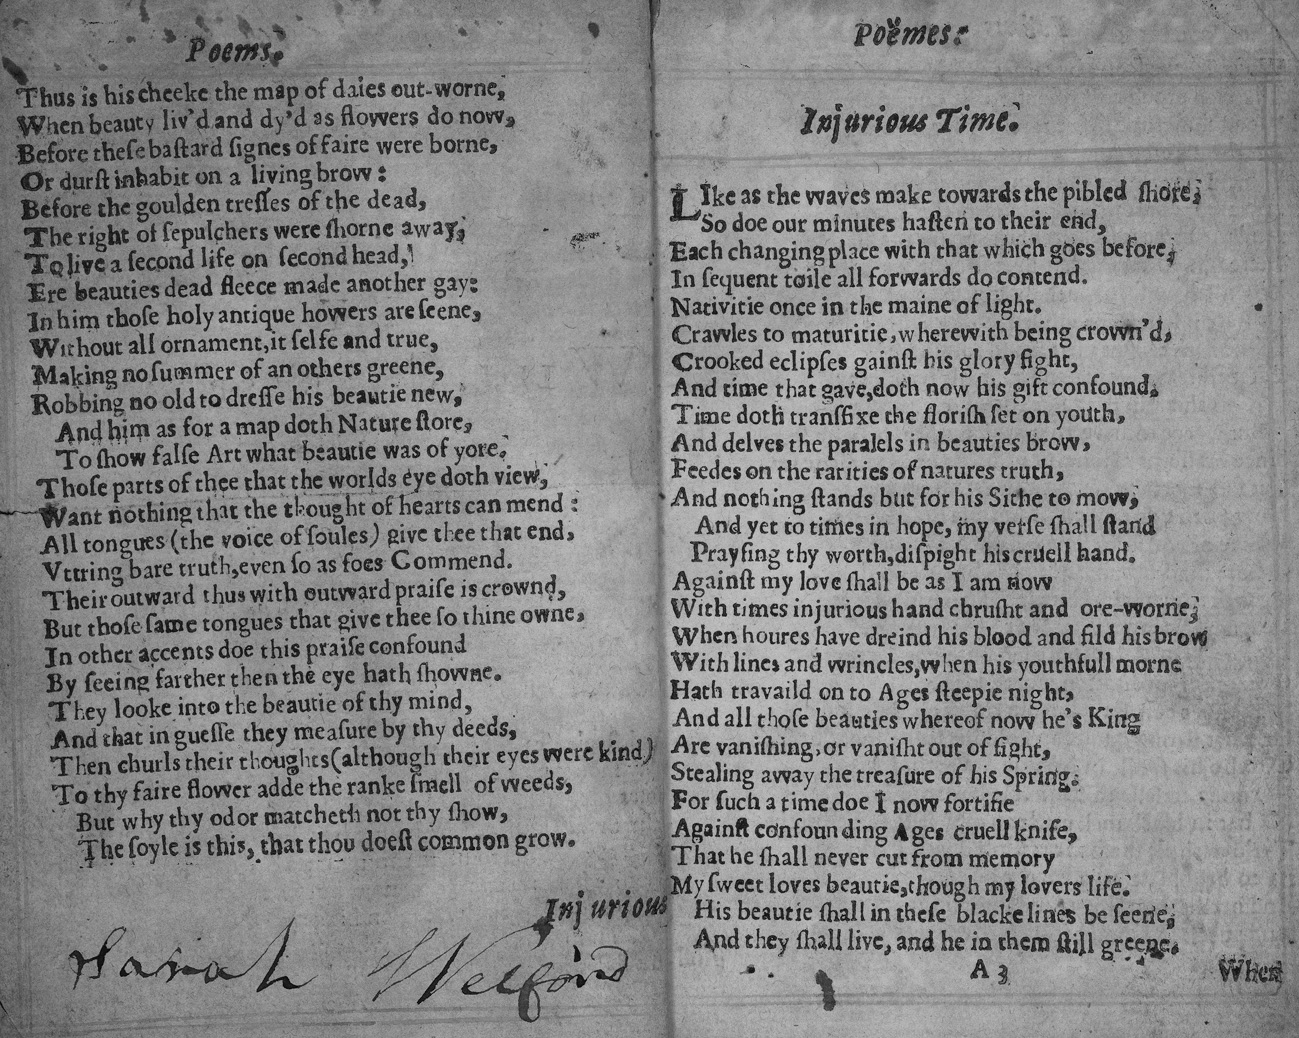 Poems.
Thus is his cheeke the map of daies out-worne,
When beauty liv'd and dy'd as flowers do now,
Before theſe baſtard ſignes of faire were borne,
Or durſt inhabit on a living brow:
Before the goulden treſſes of the dead,
The right of ſepulchers were ſhorne away,
To live a ſecond life on ſecond head,
Ere beauties dead fleece made another gay:
In him thoſe holy antique howers are ſeene,
Without all ornament, it ſelfe and true,
Making no ſummer of an others greene,
Robbing no old to dreſſe his beautie new,
And him as for a map doth Nature ſtore,
To ſhow falſe Art what beautie was of yore.
Thoſe parts of thee that the worlds eye doth view,
Want nothing that the thought of hearts can mend:
All tongues (the voice of ſoules) give thee that end,
Vttring bare truth, even ſo as foes Commend.
Their outward thus with outward praiſe is crownd,
But thoſe ſame tongues that give thee ſo thine owne,
In other accents doe this praiſe confound
By ſeeing farther then the eye hath ſhowne.
They looke into the beautie of thy mind,
And that in gueſſe they meaſure by thy deeds,
Then churls their thoughts (although their eyes were kind)
To thy faire flower adde the ranke ſmell of weeds,
But why thy odor matcheth not thy ſhow,
The ſoyle is this, that thou doeſt common grow.
Injurious
Sarah Welford
Poëmes:
Injurious Time.
LIke as the waves make towards the pibled ſhore,
So doe our minutes haſten to their end,
Each changing place with that which goes before,
In ſequent toile all forwards do contend.
Nativitie once in the maine of light.
Crawles to maturitie, wherewith being crown'd,
Crooked eclipſes gainſt his glory fight,
And time that gave, doth now his gift confound.
Time doth tranſfixe the floriſh ſet on youth,
And delves the paralels in beauties brow,
Feedes on the rarities of natures truth,
And nothing ſtands but for his Sithe to mow,
And yet to times in hope, my verſe ſhall ſtand
Prayſing thy worth, diſpight his cruell hand.
Againſt my love ſhall be as I am now
With times injurious hand chruſht and ore-worne,
When houres have dreind his blood and fild his brow
With lines and wrincles, when his youthfull morne
Hath travaild on to Ages ſteepie night,
And all thoſe beauties whereof now he's King
Are vaniſhing, or vaniſht out of ſight,
Stealing away the treaſure of his Spring.
For ſuch a time doe I now fortifie
Againſt confounding Ages cruell knife,
That he ſhall never cut from memory
My ſweet loves beautie, though my lovers life.
His beautie ſhall in theſe blacke lines be ſeene,
And they ſhall live, and he in them ſtill greene.
A 3
When